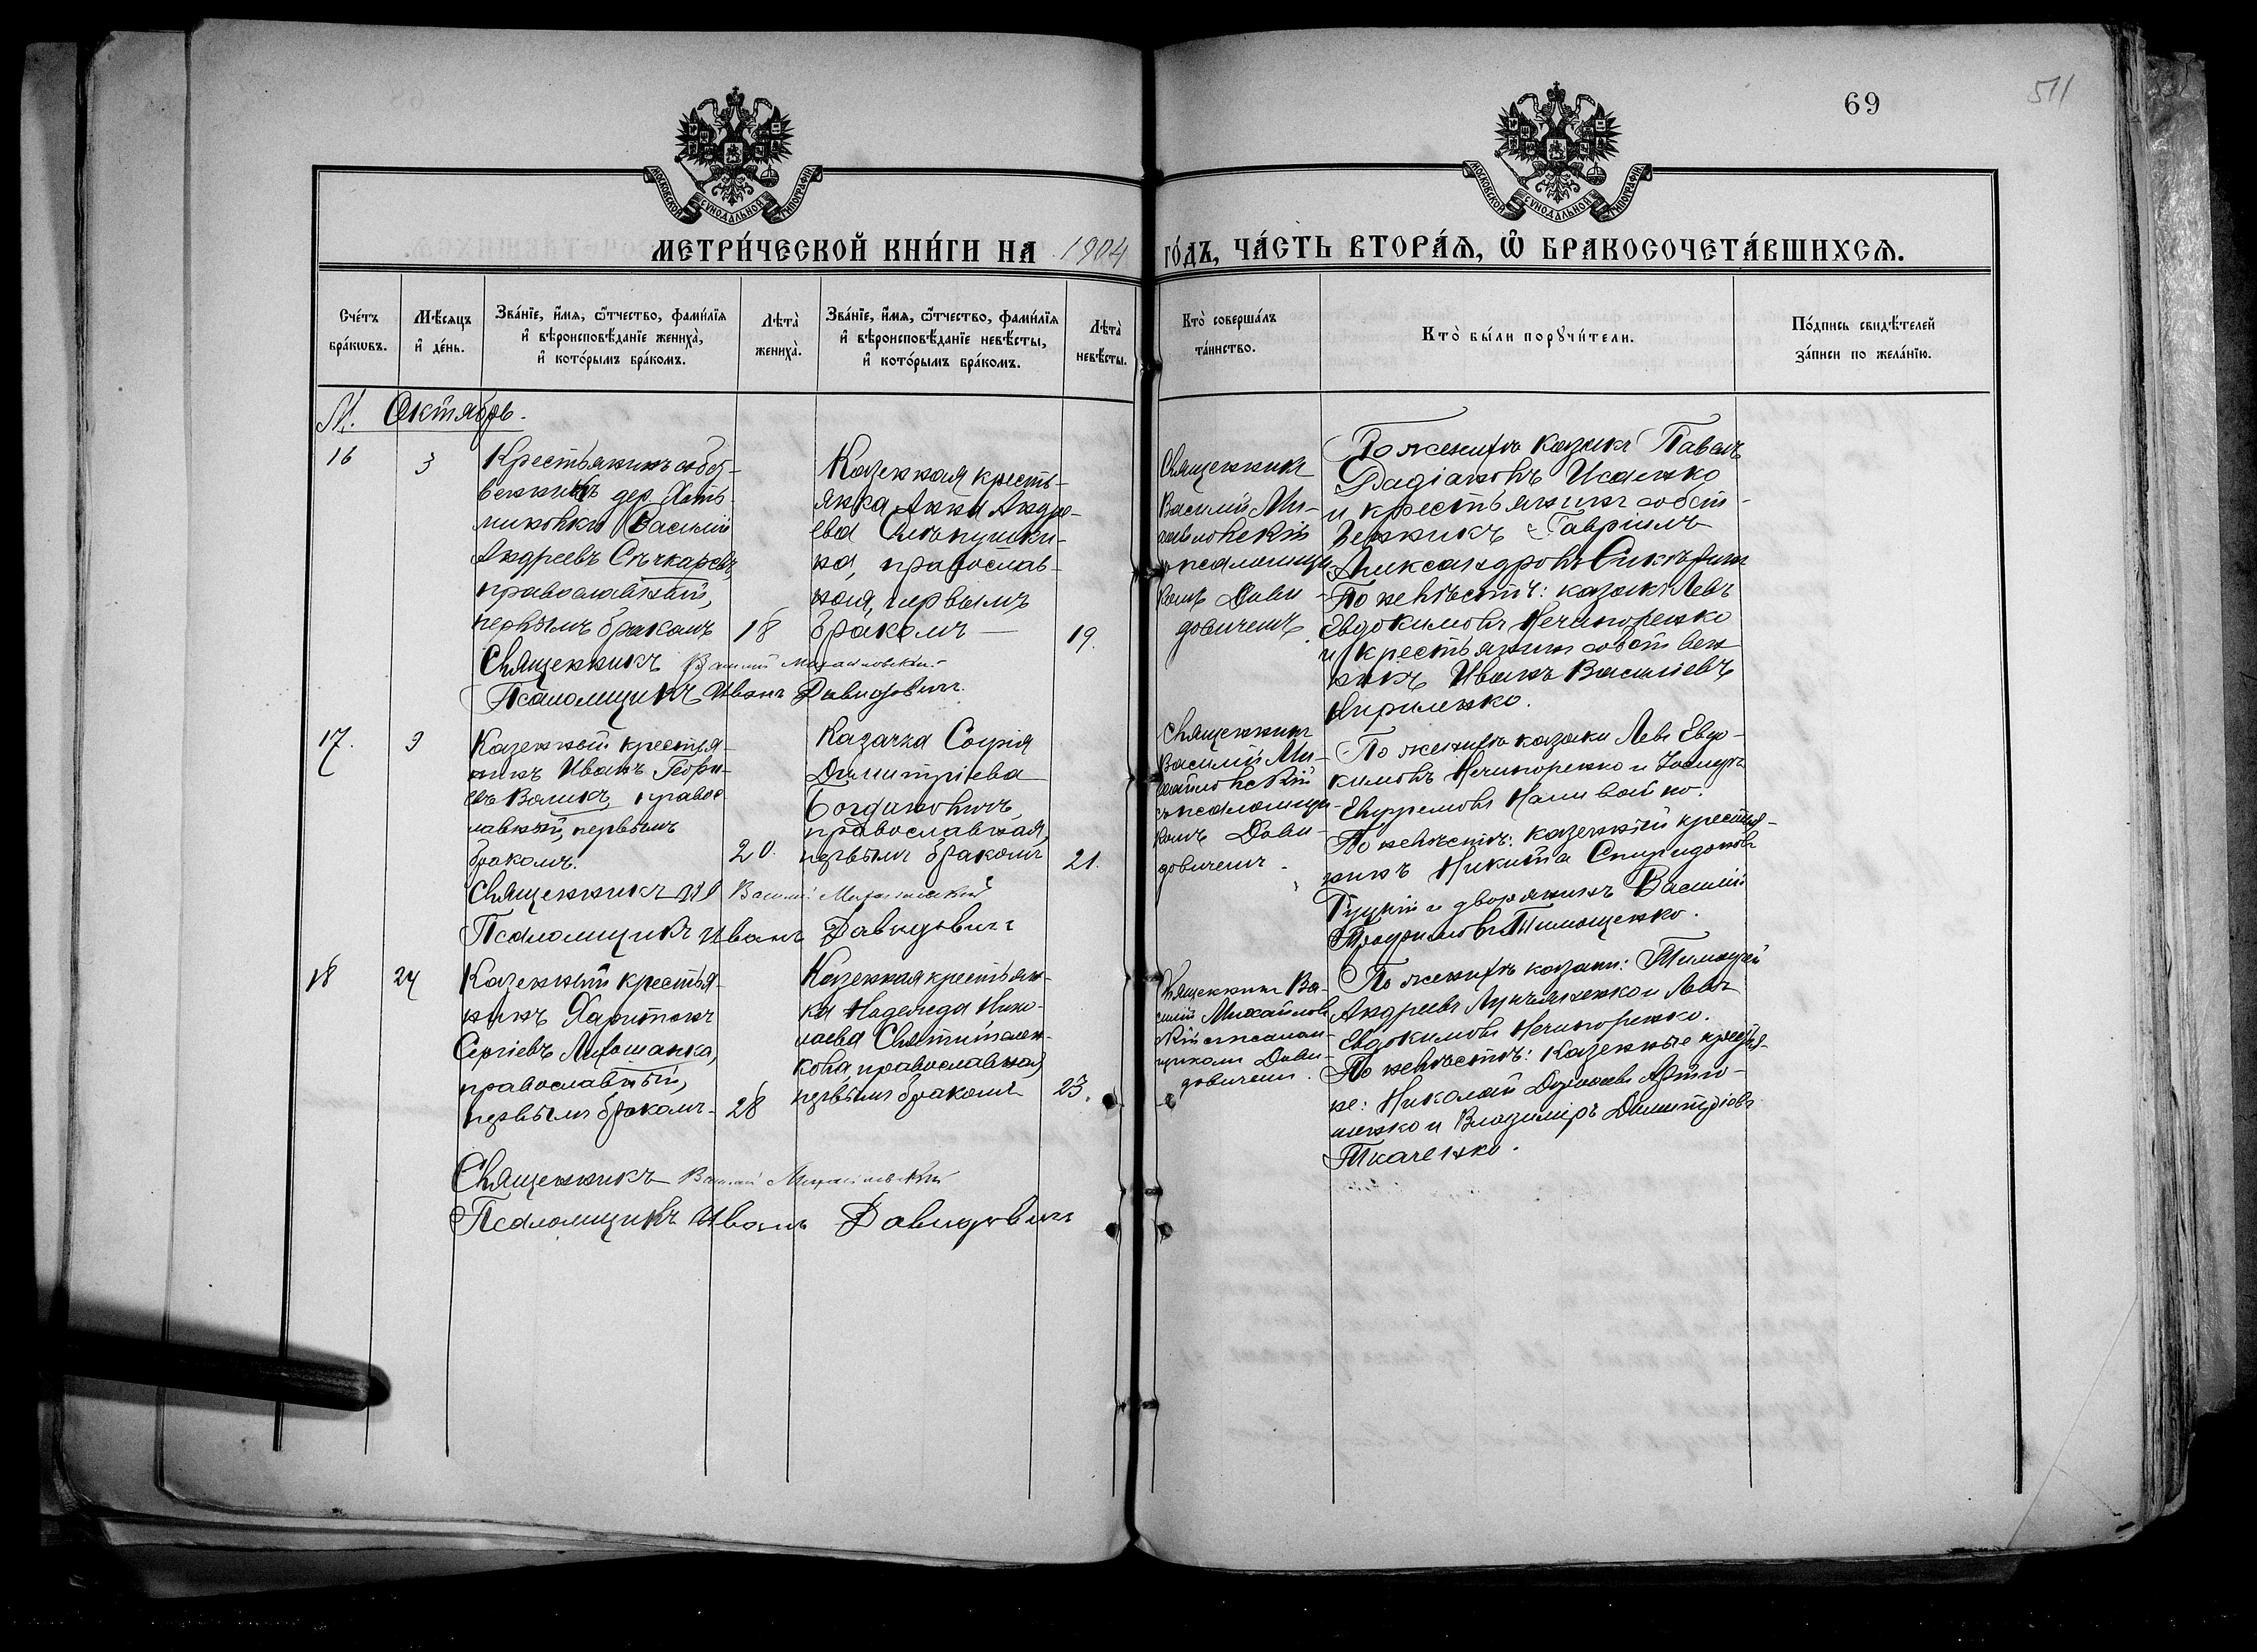 69
511
МОСКОВСКОЙ СѴНОДАЛЬНОЙ ТИПОГРАФІИ
МОСКОВСКОЙ СѴНОДАЛЬНОЙ ТИПОГРАФІИ
МЕТРИ́ЧЕСКОЙ КНИ́ГИ НА 1904 ГО́ДЪ, ЧА́СТЬ ВТОРА́Ѧ, Ѽ БРАКОСОЧЕТА́ВШИХСѦ.
Сче́тъ
бра́кѡвъ.
Мѣ́сѧцъ
и҆ де́нь.
Зва́нїе, и҆́мѧ, ѻ҆́тчество, фами́лїѧ
и҆ вѣроисповѣ́данїе жениха̀,
и҆ кото́рымъ бра́комъ.
Лѣта̀
жениха̀.
Зва́нїе, и҆́мѧ, ѻ҆́тчество, фами́лїѧ
и҆ вѣроисповѣ́данїе невѣ́сты,
и҆ кото́рымъ бра́комъ.
Лѣта̀
невѣ́сты.
Кто̀ соверша́лъ
та́инство.
Кто̀ бы́ли порꙋчи́тели.
По́дпись свидѣ́телей
за́писи по жела́нїю.
М. Октябрь.
16
3
Крестьянинъ собст-
венникъ дер.
Василій
Андреевъ Сѣчкаревъ,
православный,
первымъ бракомъ
18
Казенная кресть-
янка Анна Андре-
ева
на, православ-
ная, первымъ
бракомъ
19.
Священникъ
Василій Ми-
хайловскій
съ псаломщи-
комъ Дави-
довичемъ
По женихѣ козаки Павелъ
Исаенко
и крестьянинъ собст-
венникъ Гавріилъ
Александровъ
По невѣстѣ: козакъ Левъ
Евдокимовъ Нечипоренко
и крестьянинъ собствен-
никъ Иванъ Васильевъ
Кириленко.
Священникъ Василій Михайловскій
Псаломщикъ Иванъ Давидовичъ.
17.
9
Казенный крестья-
нинъ Иванъ Георгі-
евъ Воликъ, правос-
лавный, первымъ
бракомъ.
20.
Казачка Софія
Димитріева
Богдановичъ,
православная,
первымъ бракомъ
21.
Священникъ
Василій Ми-
хайловскій
съ псаломщи-
комъ Дави-
довичемъ.
По женихѣ козаки Левъ Евдо-
кимовъ Нечипоренко и
Ефремовъ Наливайко.
По невѣстѣ: казенный крестья-
нинъ Никита Спиридоновъ
и дворянинъ Василій
Трофимовъ Тимощенко.
Священникъ Василій Михайловскій
Псаломщикъ Иванъ Давидовичъ
18
24
Казенный крестья-
нинъ Харитонъ
Сергіевъ
православный,
первымъ бракомъ
28
Казенная крестьян-
ка Надежда Нико-
лаева
кова, православная,
первымъ бракомъ
23.
Священникъ Ва-
силій Михайловс-
кій съ псалом-
щикомъ Дави-
довичемъ.
По женихѣ козаки: Тимофей
Андреевъ и Левъ
Евдокимовъ Нечипоренко.
По невѣстѣ: Казенные крестья-
не: Николай
и Владиміръ Димитріевъ
Ткаченко.
Священникъ Василій Михайловскій
Псаломщикъ Иванъ Давидовичъ